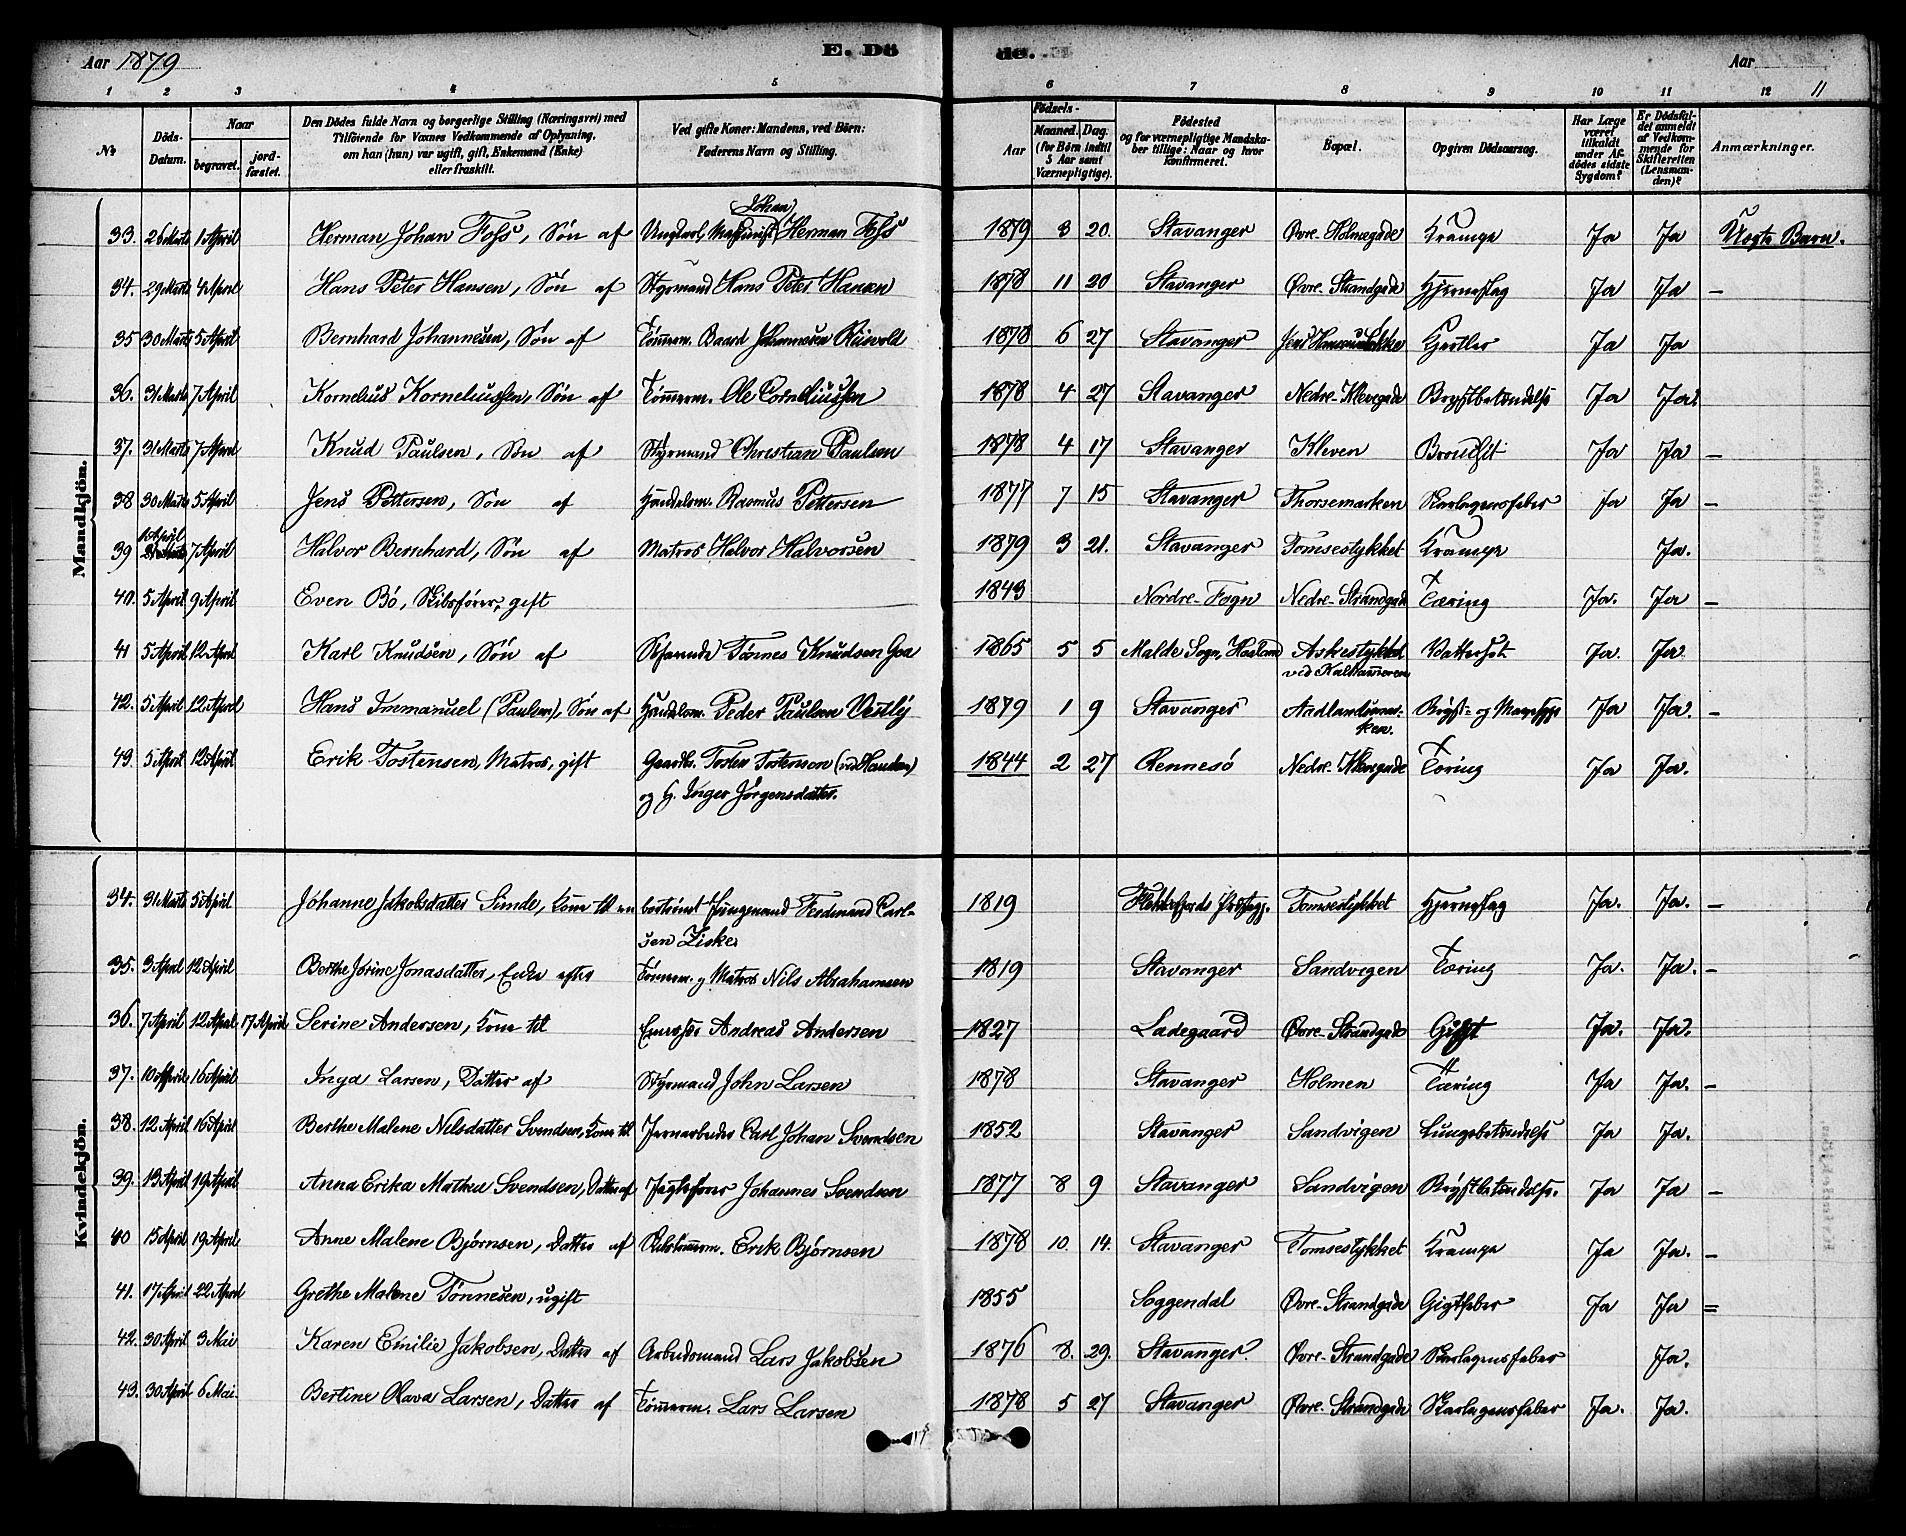 Aar 1879 E. Dö de. Aar 11
1 2 3 4 5 6 7 8 9 10 11 12
№ Döds-Datum. Naar begravet. jord-fæstet. Den Dödes fulde Navn og borgerlige Stilling (Næringsvei) med Tilföiende for Voxnes Vedkommende af Oplysning, om han (hun) var ugift, gift, Enkemand (Enke) eller fraskilt. Ved gifte Koner: Mandens, ved Börn: Faderens Navn og Stilling. Födsels- Aar Maaned. Dag. (for Börn indtil 5 Aar samt Værnepligtige). Födested og for værnepligtige Mandska-ber tillige: Naar og hvor konfirmeret. Bopæl. Opgiven Dödsaarsag. Har Læge været tilkaldt under Af-dödes sidste Sygdom? Er Dödsfal-det anmeldt af Vedkom-mende for Skifteretten (Lensman-den)? Anmærkninger.
Mandkjön.
33. 26 Marts 1 April Herman Johan Fofs, Søn af Ungkarl, Maskinist Johan Herman Fofs 1879 3 20. Stavanger Øvre Holmegade Krampe Ja Ja Uægte Barn.
34. 29 Marts 4 April Hans Peter Hansen, Søn af Styrmand Hans Peter Hansen 1878 11 20 Stavanger Øvre Strandgade Hjerneslag Ja Ja —
35 30 Marts 5 April Bernhard Johannesen, Søn af Tømmerm. Baard Johannesen 1878 6 27 Stavanger Ja Ja
36. 31 Marts 7 April Kornelius Korneliussen, Søn af Tømmerm. Ole Corneliussen 1878 4 27 Stavanger Nedre Klevegade Brystbetændelse Ja Ja.
37. 31 Marts 7 April Knud Paulsen, Søn af Styrmand Christian Paulsen 1878 4 17 Stavanger Kleven Ja Ja —
38 30 Marts 5 April Jens Pettersen, Søn af Handelsm. Rasmus Pettersen 1877 7 15 Stavanger Thorsemarken Skarlagensfeber Ja Ja —
39 1 April 7 April Halvor Bernhard, Søn af Matros Halvor Halvorsen 1879 3 21. Stavanger Tomsestykket Krampe Ja.
40. 5 April 9 April Even Bö, Skibsfører, gift 1843 Nordre Fogn Nedre Strandgade Tæring Ja. Ja —
41 5 April 12 April Karl Knudsen, Søn af Tønnes Knudsen Goa 1865 5 5 Malde Sogn, Haaland Askestykket Vattersot Ja. Ja
ved Kalhammeren
42. 5 April 12 April Hans Immanuel (Paulsen), Søn af Handelsm. Peder Paulsen Vestly 1879 1 9 Stavanger Aadlandsmar- Bryst- og Mavesyge Ja Ja. —
ken.
43. 5 April 12 April Erik Tostensen, Matros, gift Gaardbr. Tosten Tostenson 1844 2 27 Rennesö Nedre Klevegade Tæring Ja Ja.
og H. Inger Jörgensdatter.
Kvindekjön.
34. 31 Marts 5 April Johanne Jakobsdatter Sunde, Kone til en bortrömt Ferdinand Carl- 1819 Flekkefjords Præstegj. Tomsestykket Hjerneslag Ja. Ja. —
sen Ziske.
35. 3 April 12 April Berthe Jorine Jonasdatter, Enke efter Tømmerm. og Matros Nils Abrahamsen 1819 Stavanger Sandvigen Tæring Ja. Ja. —
36. 7 April 12 April 17 April Serine Andersen, Kone til Andreas Andersen 1827 Ladegaard Øvre Strandgade Gigt Ja. Ja.
37. 10 April 16 April Inga Larsen, Datter af Styrmand John Larsen 1878 Stavanger Holmen Tæring Ja Ja. —
38. 12 April 16 April Berthe Malene Nilsdatter Svendsen, Kone til Jernarbeider Carl Johan Svendsen 1852 Stavanger Sandvigen Lungebetændelse Ja Ja.
39. 13 April 19 April Anna Erika Mathea Svendsen, Datter af Jagtefører Johannes Svendsen 1877 8 9 Stavanger Sandvigen Brystbetændelse. Ja Ja —
40 15 April 19 April Anne Malene Bjørnsen, Datter af Skibstømmerm. Erik Bjørnsen 1878 10. 14. Stavanger Tomsestykket Krampe Ja Ja. —
41. 17 April 22 April Grethe Malene Tönnesen, ugift 1855 Soggendal Øvre Strandgade Gigtfeber Ja Ja =
42. 30 April 3 Mai Karen Emilie Jakobsen, Datter af Arbeidsmand Lars Jakobsen 1876 8. 29. Stavanger. Øvre Strandgade Skarlagensfeber Ja.
43. 30 April 6 Mai Bertine Olava Larsen, Datter af Tømmerm. Lars Larsen 1878 5 27 Stavanger Øvre Strandgade Skarlagensfeber Ja. Ja.